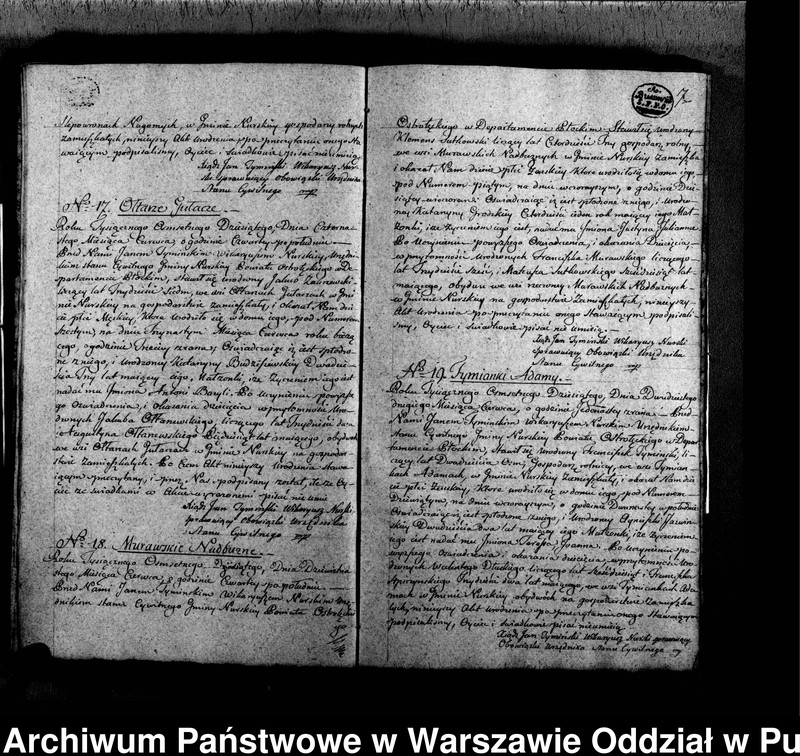 Ślepowronach Nagornych, w Gminie Nurskiey gospodarzy rolnych
zamieszkałych, ninieyszy Akt Urodzenia po przeczytaniu onego Sta
waiącym podpisaliśmy, Oyciec i Świadkowie pisać nie umieią.
Xiądz Jan Tymiński Wikaryusz Nur-
ski sprawuiący obowiązki Urzędnika
Stanu Cywilnego mp
No. 17. Ołtarze Gutacze.
Roku Tysiącznego Ośmsetnego Dziesiątego, Dnia Czterna-
stego Miesiąca Czerwca, o godzinie Czwartey po południu
Przed Nami Janem Tyminskim Wikaryuszem Nurskim, Urzędni-
kiem stanu Cywilnego Gminy Nurskiey Powiatu Ostrołęckiego De-
partamencie Płockim, stawił się Urodzony Jakub
liczący lat Trzydzieści Siedm, we wsi Ołtarzach Gutaczach w Gmi-
nie Nurskiey na gospodarstwie zamieszkały, i okazał Nam dzie
cie płci Męskiey, które urodziło się w domu iego, pod Numerem
Szostym, na dniu Trzynastym Miesiąca Czerwca roku bieżą
cego, o godzinie Trzeciey zrana, Oświadczaiąc iż iest spłodzo-
ne z niego, i Urodzoney Katarzyny Dwadzie-
ścia Trzy lat maiącey iego Małżonki, i że życzeniem iego iest
nadać mu Imiona Antoni Bazyli. Po uczynieniu powyższe
go Oświadczenia, i okazaniu dziecięcia w przytomności Uro-
dzonych Jakuba Ołtarzewskiego, liczącego lat Trzydzieści dwa
i Augustyna Ołtarzewskiego Piędziesiąt lat maiącego, obydwoch
we wsi Ołtarzach Gutaczach w Gminie Nurskiey na gospodar-
stwie zamieszkałych. Po czem Akt ninieyszy Urodzenia Stawa-
iącym przeczytany, i przez Nas podpisany został, ile że Oy-
ciec ze świadkami w Akcie wyrażonemi pisać nie umie
Xiądz Jan Tymiński Wikaryusz Nurski
sprawuiący obowiązki Urzędnika
Stanu Cywilnego mp
No. 18. Murawskie Nadbużne
Roku Tysiącznego Ośmsetnego Dziesiątego, Dnia
stego Miesiąca Czerwca, o godzinie Czwartey po południu
Przed Nami Janem Tyminskim Wikaryuszem Nurskim Urzę-
dnikiem stanu Cywilnego Gminy Nurskiey Powiatu Ostrołęc-
7
Ostrołęckiego w Departamencie Płockim, Stawił się Urodzony
Klemens Sutkowski liczący lat Czterdzieści Trzy gospodarz rolny
we wsi Murawskich Nadbużnych w Gminie Nurskiey Zamieszkały
i okazał Nam dziecie płci Żeńskiey które urodziło się w domu iego,
pod Numerem Piątym, na dniu wczorayszym, o godzinie Dzie-
siątey wieczorem Oświadczaiąc iż iest spłodzone z niego, i Urodzo-
ney Katarzyny Grodzkiey Czterdzieści ieden rok maiącey iego Mał-
żonki, i że życzeniem iego iest, nadać mu Imiona Justyna Julianna
Po uczynieniu powyższego Oświadczenia, i okazaniu Dziecięcia,
w przytomności Urodzonych Franciszka Murawskiego liczącego
lat Trzydzieści Sześć, i Mateusza Sutkowskiego Sześdziesiąt lat
maiącego, obydwu we wsi rzeczoney Murawskich Nadbużnych
w Gminie Nurskiey na gospodarstwie Zamieszkałych, ninieyszy
Akt Urodzenia po przeczytaniu onego Stawaiącym podpisali-
śmy, Oyciec i świadkowie pisać nie umieią.
Xiądz Jan Tymiński Wikaryusz Nurski
Sprawuiący Obowiązki Urzędnika
Stanu Cywilnego mp
No. 19. Tymianki Adamy.
Roku Tysiącznego Ośmsetnego Dziesiątego, Dnia Dwudziestego
drugiego Miesiąca Czerwca, o godzinie Jedenastey zrana Przed
Nami Janem Tyminskim Wikaryuszem Nurskim Urzędnikiem
Stanu Cywilnego Gminy Nurskiey Powiatu Ostrołęckiego w Depar-
tamencie Płockim, Stawił się Urodzony Franciszek Tymiński, li-
czący lat Dwadzieścia Ośm, Gospodarz rolniczy, we wsi Tymian
kach Adamach, w Gminie Nurskiey Zamieszkały, i okazał Nam dzie
cie płci Żeńskiey, które urodziło się w domu iego, pod Numerem
Dziewiątym, na dniu wczorayszym, o godzinie Dwunastey w południe
Oświadczaiąc iż iest spłodzone z niego, i Urodzoney Agnieszki
Dwadzieścia dwa lat maiącey iego Małżonki, i że życzeniem
iego iest nadać mu Imiona Teressa Joanna. Po uczynieniu po-
wyższego Oświadczenia i okazaniu dziecięcia w przytomności Uro-
dzonych Walentego Dłuskiego liczącego lat Sześdziesiąt, i Franciszka
Trzydzieści dwa lat maiącego, we wsi Tymiankach Ada-
mach w Gminie Nurskiey obydwoch na gospodarstwie Zamieszka-
łych, ninieyszy Akt Urodzenia po przeczytaniu onego Stawaiącym
podpisaliśmy, Oyciec i świadkowie pisać nieumieią
Xiądz Jan Tymiński Wikaryusz Nurski sprawuiący
Obowiązki Urzędnika Stanu Cywilnego mp
Archiwum Państwowe w Warszawie Oddział w Pu